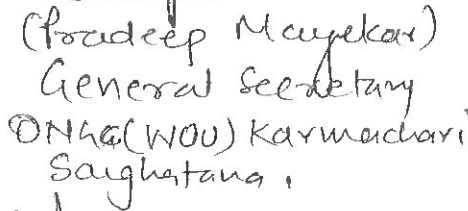 (Pradeep Mayekar)
General Secretary
ONGC(WOU) Karmachari
Sanghatana,